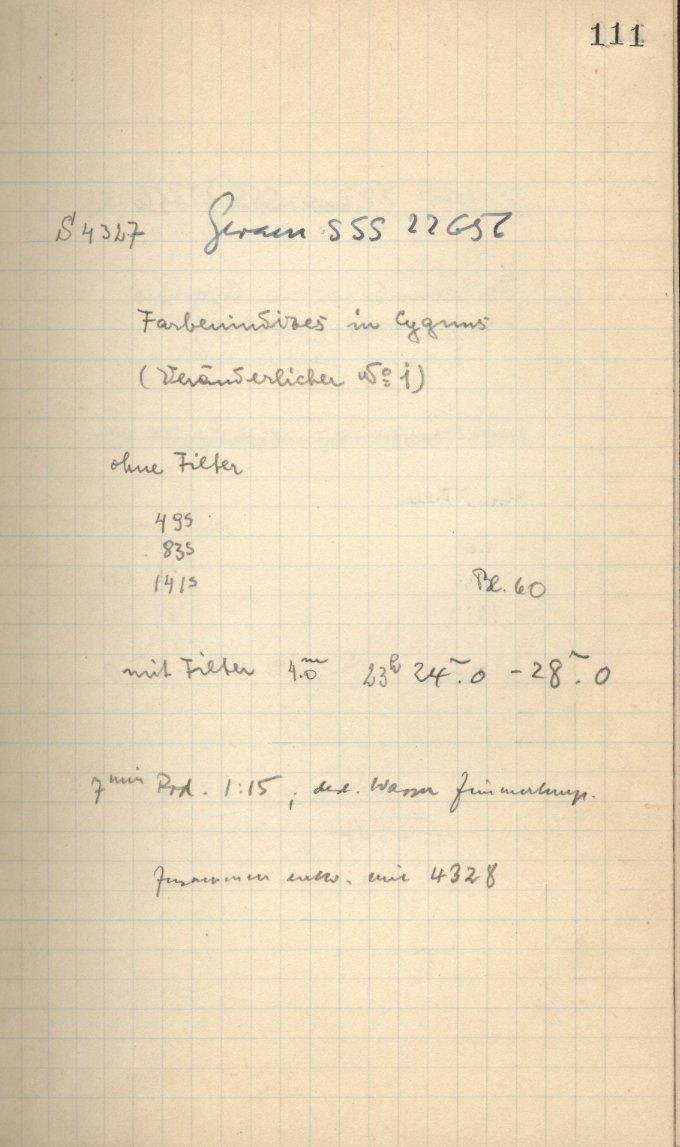 111
S 4327 Gevaert SSS 22656
Farbenindizes in Cygnus
(Veränderlicher No 1)
ohne Filter
49s
83s
141s Bl. 60
mit Filter 4.0m 23h 24m.0 - 28m.0
7min Rod. 1:15, dest. Wasser Zimmertemp.
Zusammen entw. mit 4328